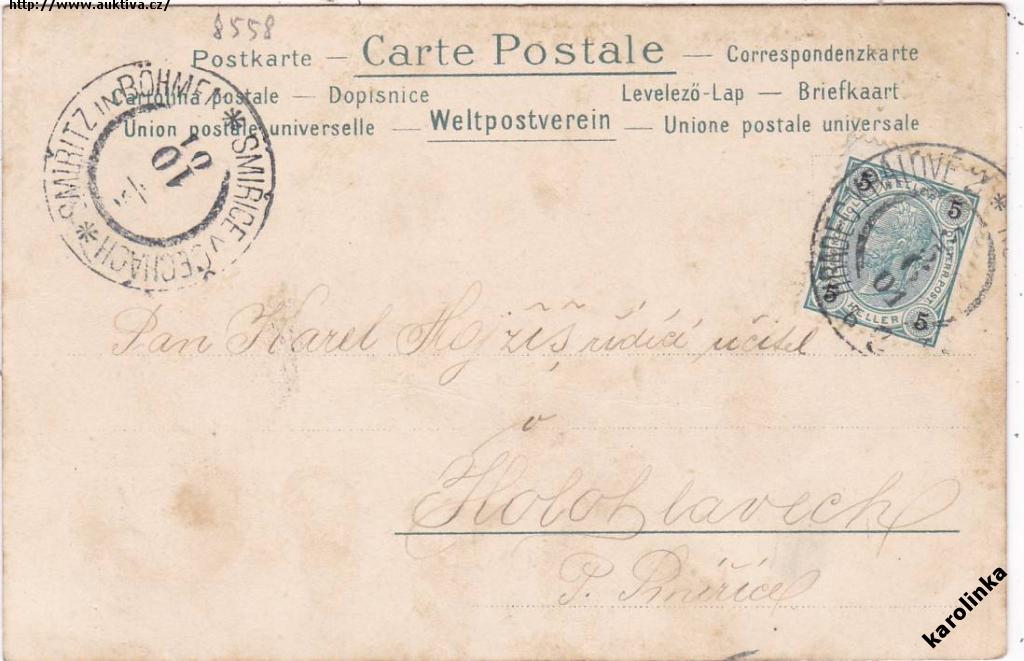 http://www.auktiva.cz/
8558
Postkarte — Carte Postale — Correspondenzkarte
Cartolina postale — Dopisnice Levelező-Lap — Briefkaart
Union postale universelle — Weltpostverein — Unione postale universale
* SMIŘITZ IN BÖHMEN * SMIŘICE V ČECHÁCH
10
01
HRADEC KRÁLOVÉ 2 *
5 5 5 5
HELLER
HELLER
Pan Karel řídící učitel
v
Holohlavech
P. Smiřice
karolinka